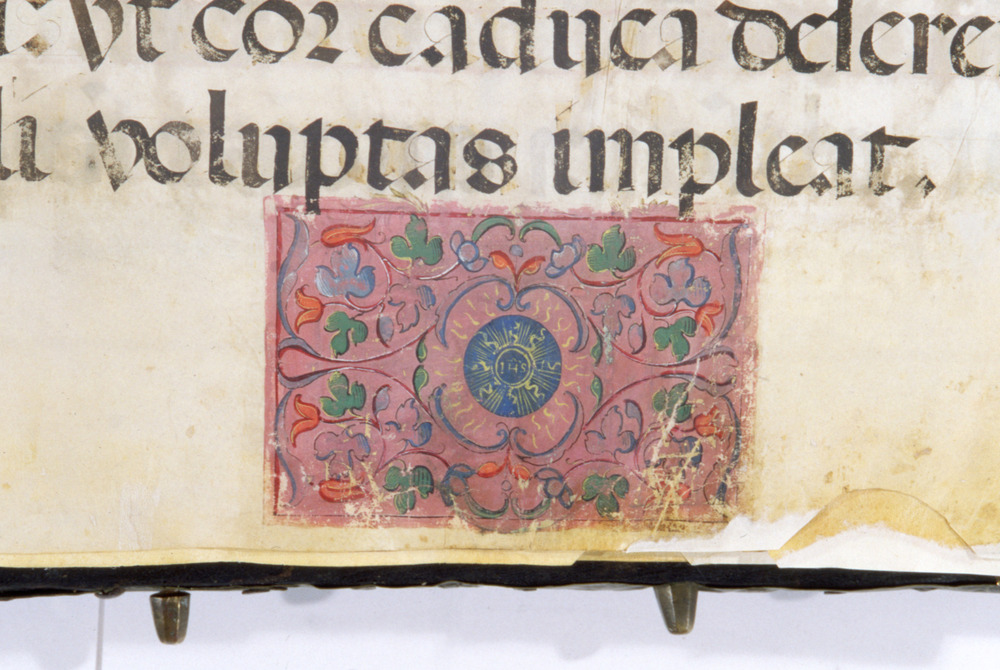 Vt cor caduca desere
voluptas impleat.
IHS